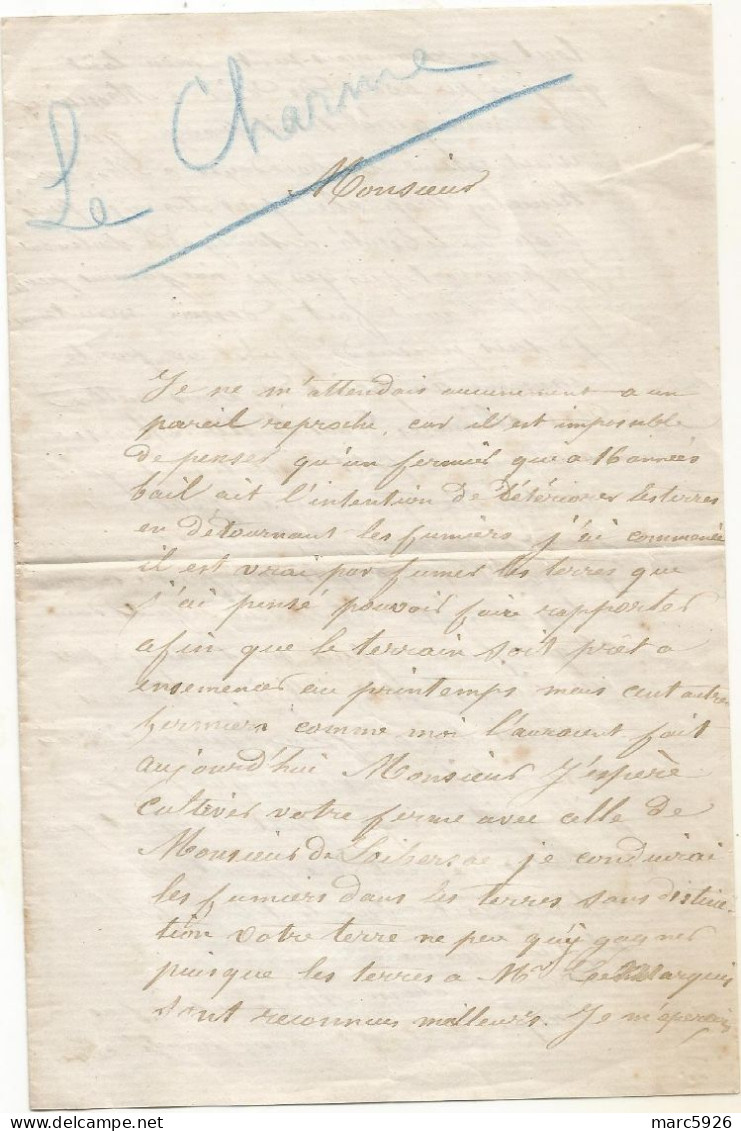 Le Charme
Monsieur
Je ne m'attendais aucunement a un
pareil reproche, car il est impossible
de penser qu'un fermier que a 16 années
bail ait l'intention de détériorer les terres
en détournant les fumiers. j'ai commencé
il est vrai par fumer les terres que
j'ai pensé pouvoir faire rapporter
afin que le terrain soit prêt a
ensemencer au printemps mais cent autres
fermiers comme moi l'auraient fait
aujourd'hui Monsieur J'espère
cultiver votre ferme avec celle de
Monsieur de je conduirai
les fumiers dans les terres sans distinc-
tion votre terre ne peu qu'y gagner
puisque les terres a Mr Le Marquis
sont reconnues meilleurs. Je m'aperçois
marc5926